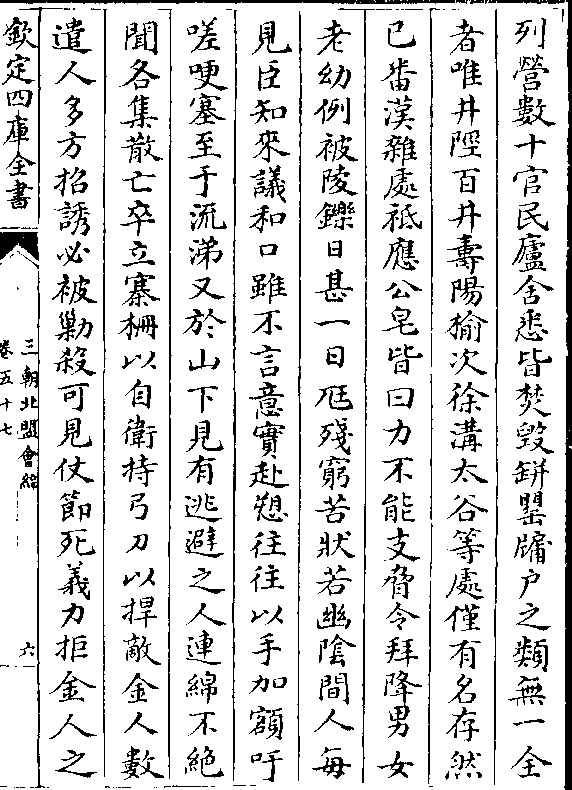 列營數十官民廬舍悉皆焚毀缾罌牖户之類無一全
者唯井陘百井壽陽榆次徐溝太谷等處僅有名存然
已番漢雜處祗應公皂皆曰力不能支脅令拜降男女
老幼例被陵鑠日甚一日尫殘窮苦狀若幽隂間人每
見臣知來議和口雖不言意實赴愬往往以手加額吁
嗟哽塞至于流涕又於山下見有逃避之人連綿不絶
聞各集散亡卒立寨栅以自衛持弓刀以捍敵金人數
遣人多方招誘必被勦殺可見仗節死義力拒金人之
欽定四庫全書
三朝北盟會編
卷五十七
六